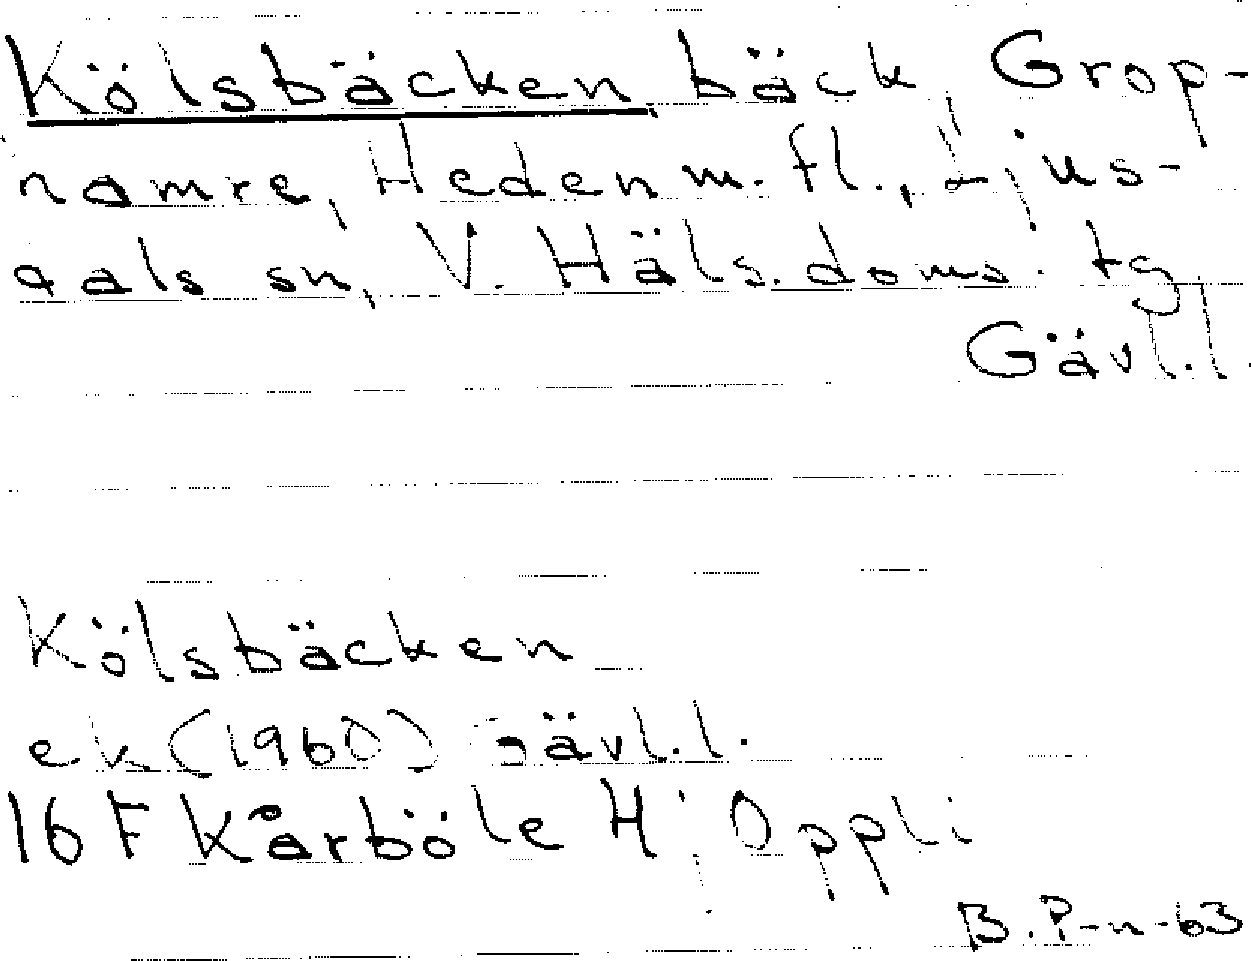 Kölsbäcken bäck, Grop-
namre, Heden m. fl., Ljus-
dals sn, V. Häls. doms. tg
Gävl. l.
Kölsbäcken
ek (1960) Gävl. l.
16 F Kårböle H; Oppli
B. P-n-63